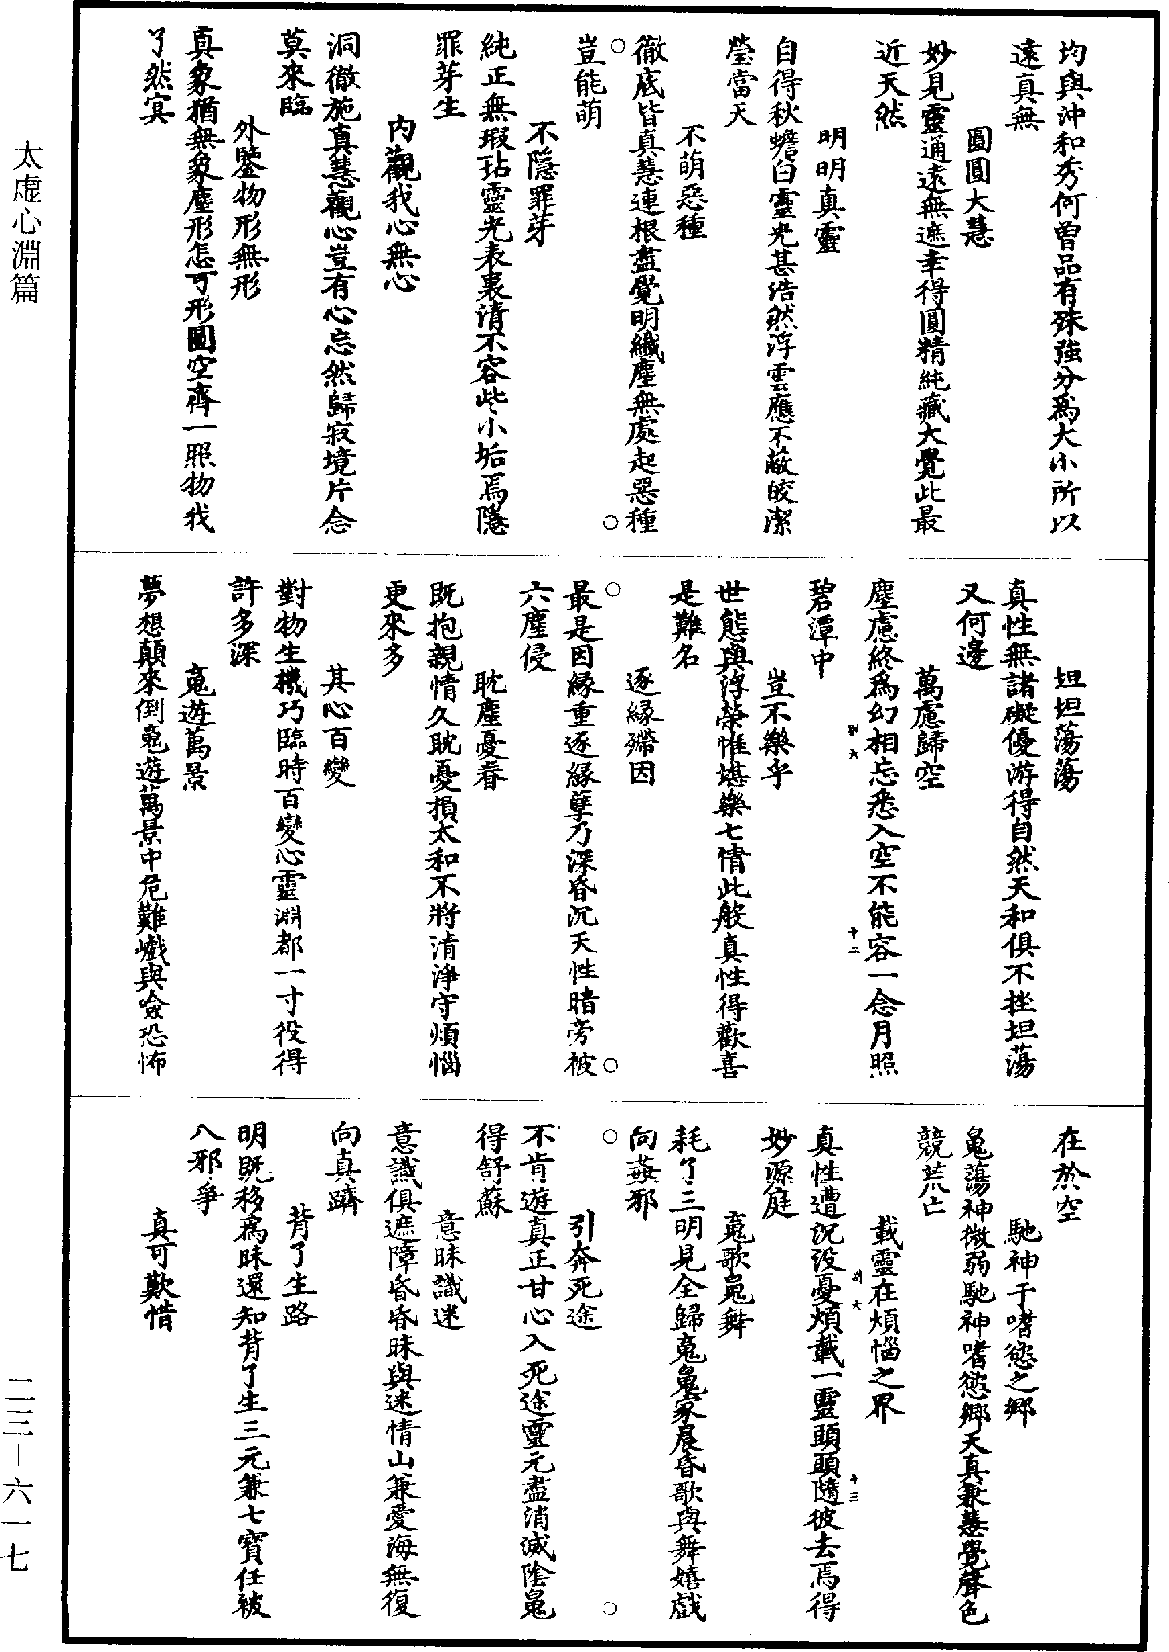 均與沖和秀何曾品有殊強分爲大小所以
遠真無
圓圓大慧
妙見靈通遠無遮幸得圓精純藏大覺此最
近天然
明明真靈
自得秋蟾白靈光甚浩然浮雲應不蔽皎潔
瑩當天
不萌惡種
徹底皆真慧連根盡覺明纖塵無處起惡種
豈能萌
不隱罪芽
純正無瑕玷靈光表裏清不容些小垢焉隱
罪芽生
內觀我心無心
洞徹施真慧觀心豈有心忘然歸寂境片念
莫來臨
外鑒物形無形
真象猶無象塵形怎可形圓空齊一照物我
了然冥
坦坦蕩蕩
真性無諸礙優游得自然天和俱不挫坦蕩
又何邊
萬慮歸空
塵慮終爲幻相忘悉入空不能容一念月照
碧潭中
豈不樂乎
世態與浮榮惟堪樂七情此般真性得歡喜
是難名
逐緣殢因
最是因緣重逐緣孽乃深昏沉天性暗旁被
六塵侵
耽塵憂眷
既抱親情久耽憂損太和不將清淨守煩惱
更來多
其心百變
對物生機巧臨時百變心靈淵都一寸役得
許多深
䰟遊萬景
夢想顛來倒䰟遊萬景中危難巇與嶮恐怖
在於空
馳神于嗜慾之鄉
䰟蕩神微弱馳神嗜慾鄉天真兼慧覺聲色
競荒亡
載靈在煩惱之界
真性遭沉沒憂煩載一靈頭頭隨彼去焉得
妙源庭
䰟歌鬼舞
耗了三明見全歸䰟鬼家晨昏歌與舞嬉戲
向姦邪
引奔死途
不肯遊真正甘心入死途靈元盡消滅陰鬼
得舒蘇
意昧識迷
意識俱遮障昏昏昧與迷情山兼愛海無復
向真躋
背了生路
明既移爲昧還知背了生三元兼七寶任被
八邪爭
真可歎惜
太虛心淵篇
二三—六一七